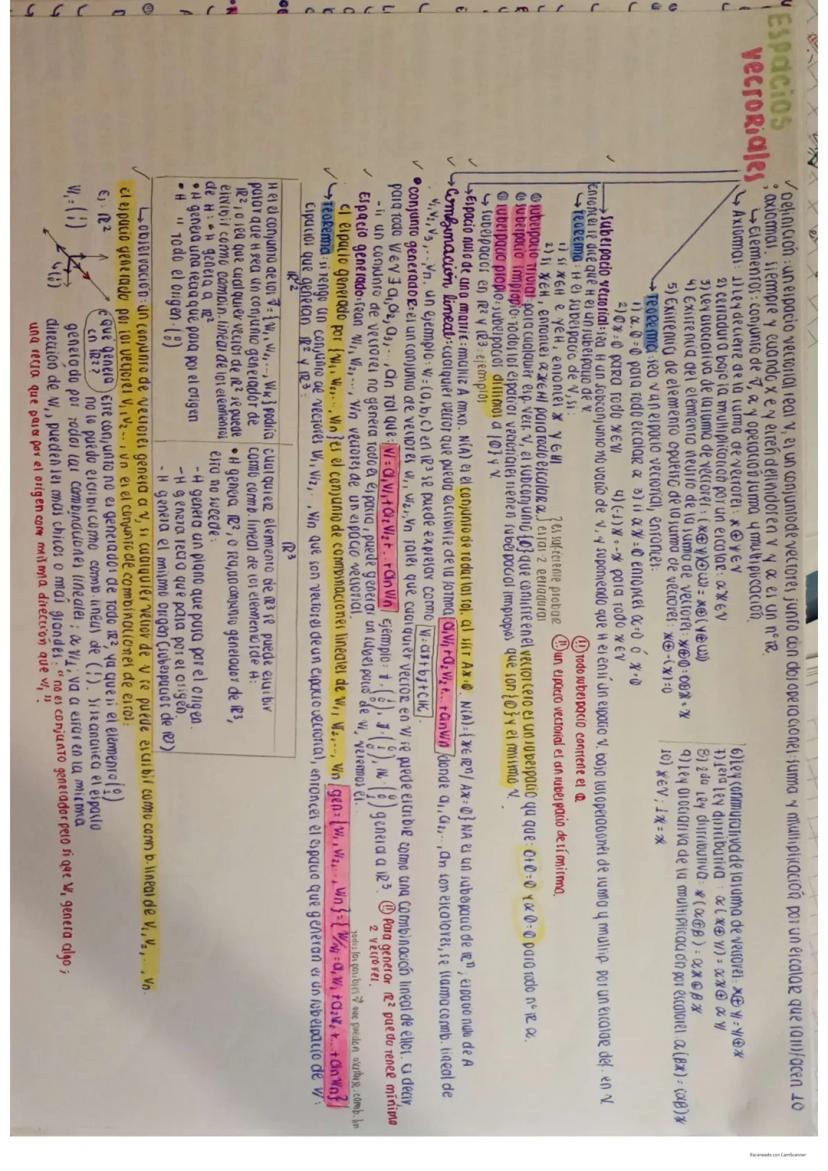 ESPACIOS VECTORIALES
✓ Definición: un espacio vectorial real V, es un conjunto de vectores junto con dos operaciones: suma y multiplicación por un escalar que satisfacen 10
axiomas. siempre y cuando x e y estén definidos en V y α es un n° ℝ.
↳ Elementos: conjunto de V⃗, α y operación suma y multiplicación.
↳ Axiomas: 1) Ley de cierre de la suma de vectores: x ⊕ y ∈ V
2) cerradura bajo la multiplicación por un escalar: αx ∈ V
3) Ley asociativa de la suma de vectores: x⊕(y⊕w) = x⊕(y⊕w)
4) Existencia del elemento neutro de la suma de vectores: x⊕0=0⊕x=x
5) Existencia de elemento opuesto de la suma de vectores: x⊕-(x)=0
6) Ley conmutativa de la suma de vectores: x⊕y = y⊕x
7) 1era Ley distributiva: α(x⊕y) = αx⊕αy
8) 2da Ley distributiva: x(α⊕β) = αx⊕βx
9) Ley asociativa de la multiplicación por escalares α(βx) = (αβ)x
10) x∈V; 1x = x
→ Teorema: sea V un espacio vectorial, entonces:
1) α.0=0 para todo escalar α
2) 0x=0 para todo x∈V
3) si αx=0 entonces α=0 ó x=0
4) (-1)x=-x para todo x∈V
✓ → Subespacio vectorial: sea H un subconjunto no vacío de V. y suponiendo que H es en sí un espacio V. bajo las operaciones de suma y multip. por un escalar def. en V
entonces se dice que H es un subespacio de V.
↳ Teorema: H es subespacio de V, si:
1) si x∈H e y∈H, entonces x+y∈H
2) si x∈H, entonces αx∈H para todo escalar α
es suficiente probar estas 2 cerraduras
(!!) todo subespacio contiene el 0.
(!!) un espacio vectorial es un subespacio de sí mismo.
⊚ subespacio trivial: para cualquier esp. vect. V, el subconjunto {0} que consiste en el vector cero es un subespacio ya que: 0+0=0 y α0=0 para todo n° ℝ α.
⊚ subespacio impropio: todos los espacios vectoriales tienen subespacios impropios que son {0} y el mismo V.
⊚ subespacio propio: subespacios distintos a {0} y V.
↳ subespacios en ℝ² y ℝ³: ejemplos
✓ → Espacio nulo de una matriz: matriz A mxn. N(A) es el conjunto de todas las sol. al sist Ax=0. N(A)={x∈ℝⁿ/Ax=0} NA es un subespacio de ℝⁿ, espacio nulo de A
✓ → Combinación lineal: cualquier vector que pueda escribirse de la forma a₁V₁+a₂V₂+...+anVn donde a₁,a₂,..., an son escalares, se llama comb. lineal de
V₁,V₂,V₃,...Vn. un ejemplo: W=(a,b,c) en ℝ³ se puede expresar como W=ai+bj+ck.
✓ • conjunto generador: es un conjunto de vectores W₁,W₂,Vn tales que cualquier vector en V, se puede escribir como una combinación lineal de ellos. es decir,
para todo V∈V ∃ a₁,a₂,a₃,..., an tal que: V=a₁V₁+a₂V₂+...+anVn
(!!) Para generar ℝ² puedo tener mínimo 2 vectores.
- si un conjunto de vectores no genera todo el espacio, puede generar un subespacio de V, veremos el:
✓ Espacio generado: sean W₁,W₂,..., Wn vectores de un espacio vectorial.
el espacio generado por {W₁, W₂,..., Wn} es el conjunto de combinaciones lineales de W₁, W₂,..., Wn gen={W₁, W₂,..., Vn}={W/W=a₁W₁+a₂W₂+...+anWn}
✓ → Teorema: si tengo un conjunto de vectores W₁,W₂,...Vn que son vectores de un espacio vectorial, entonces el espacio que generan es un subespacio de V:
Espacios que generan ℝ² y ℝ³:
ℝ²
H es el conjunto de los V⃗={W₁,W₂,...,Wk} podría
pasar que H sea un conjunto generador de
ℝ², o sea que cualquier vector de ℝ² se puede
escribir como combin. lineal de los elementos
de H: • H genera a ℝ²
• H genera una recta que pasa por el origen
• H " todo el origen. (0 0)
ℝ³
cualquier elemento de ℝ³ se puede escribir
como comb. lineal de los elementos de H:
• H genera ℝ³, o sea, un conjunto generador de ℝ³,
si esto no sucede:
- H genera un plano que pasa por el origen.
- H genera recta que pasa por el origen.
- H genera el mismo origen (subespacios de ℝ³)
✓ ↳ observación: un conjunto de vectores genera a V, si cualquier vector de V se puede escribir como comb. lineal de V₁,V₂,..., Vn.
el espacio generado por los vectores V₁,V₂..., Vn es el conjunto de combinaciones lineales de estos:
Ej: ℝ²
¿Qué genera en ℝ²?
Este conjunto no es generador de todo ℝ², ya que si el elemento
no lo puedo escribir como comb lineal de (1 1). Si se analiza el espacio
generado por todas las combinaciones lineales: αV₁: va a estar en la misma
dirección de W₁, pueden ser más chicos o más grandes: "no es conjunto generador pero sí que W₁ genera algo;
una recta que pasa por el origen con misma dirección que V₁".
V₁=(1 1)
Escaneado con CamScanner